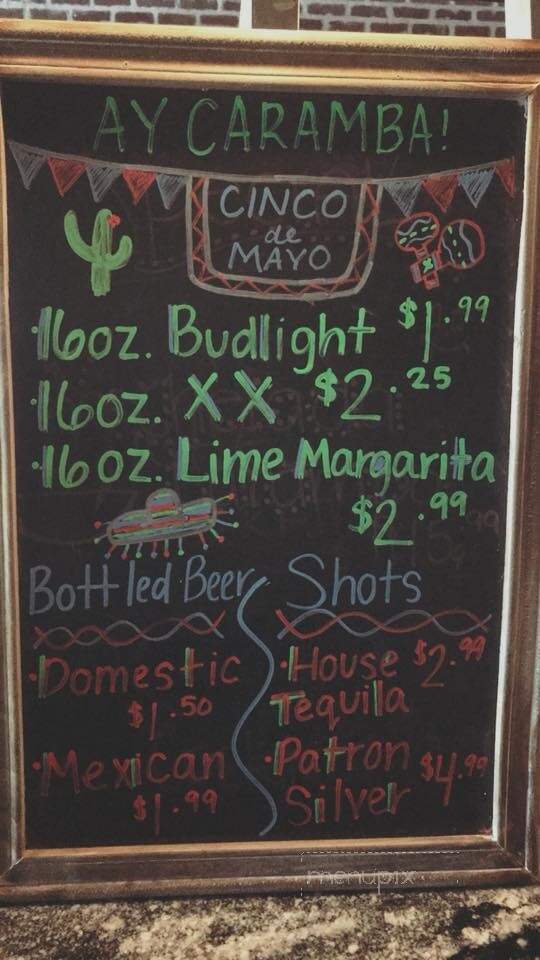 AY CARAMBA!
CINCO
de
MAYO
·16oz. Budlight $1.99
·16oz. XX $2.25
·16oz. Lime Margarita
$2.99
Bottled Beer
·Domestic
$1.50
·Mexican
$1.99
Shots
·House $2.99
Tequila
·Patron $4.99
Silver
menupix